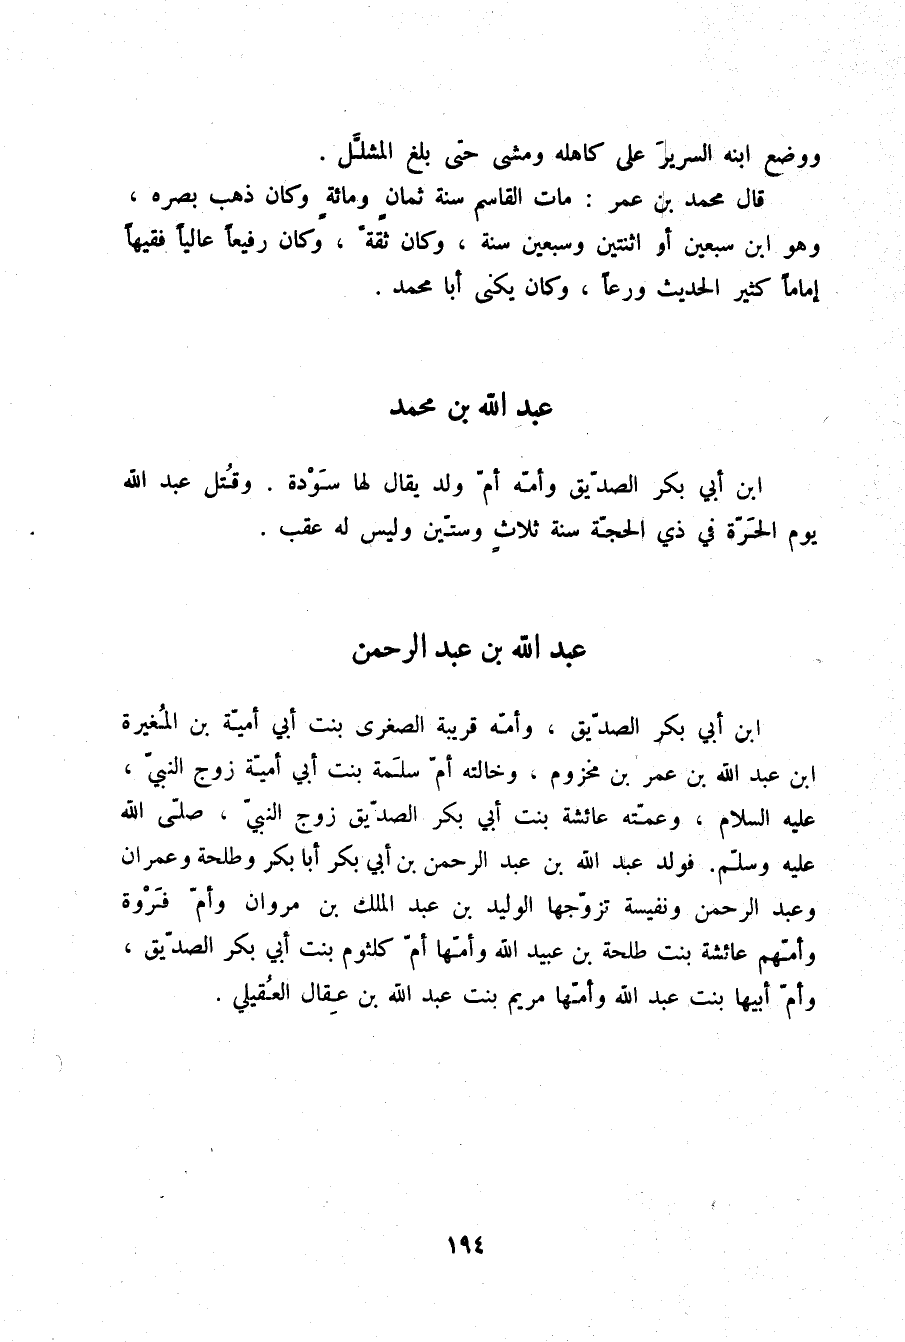 ووضع ابنه السريرَ على كاهله ومشى حتّى بلغ المشلَّل .
قال محمد بن عمر : مات القاسم سنة ثمانٍ ومائةٍ وكان ذهب بصره ،
وهو ابن سبعين أو اثنتين وسبعين سنة ، وكان ثقةً ، وكان رفيعاً عالياً فقيهاً
إماماً كثير الحديث ورعاً ، وكان يكنى أبا محمد .
عبد الله بن محمد
ابن أبي بكر الصدّيق وأمّه أمّ ولد يقال لها سَوْدة . وقُتل عبد الله
يوم الحَرّة في ذي الحجّة سنة ثلاثٍ وستّين وليس له عقب .
عبد الله بن عبد الرحمن
ابن أبي بكر الصدّيق ، وأمّه قريبة الصغرى بنت أبي أميّة بن المُغيرة
ابن عبد الله بن عمر بن مخزوم ، وخالته أمّ سلَمة بنت أبي أميّة زوج النبيّ ،
عليه السلام ، وعمّته عائشة بنت أبي بكر الصدّيق زوج النبيّ ، صلّى الله
عليه وسلّم. فولد عبد الله بن عبد الرحمن بن أبي بكر أبا بكر وطلحة وعمران
وعبد الرحمن ونفيسة تزوّجها الوليد بن عبد الملك بن مروان وأمّ فَرْوة
وأمّهم عائشة بنت طلحة بن عبيد الله وأمّها أمّ كلثوم بنت أبي بكر الصدّيق ،
وأمّ أبيها بنت عبد الله وأمّها مريم بنت عبد الله بن عِقال العُقيلي .
١٩٤